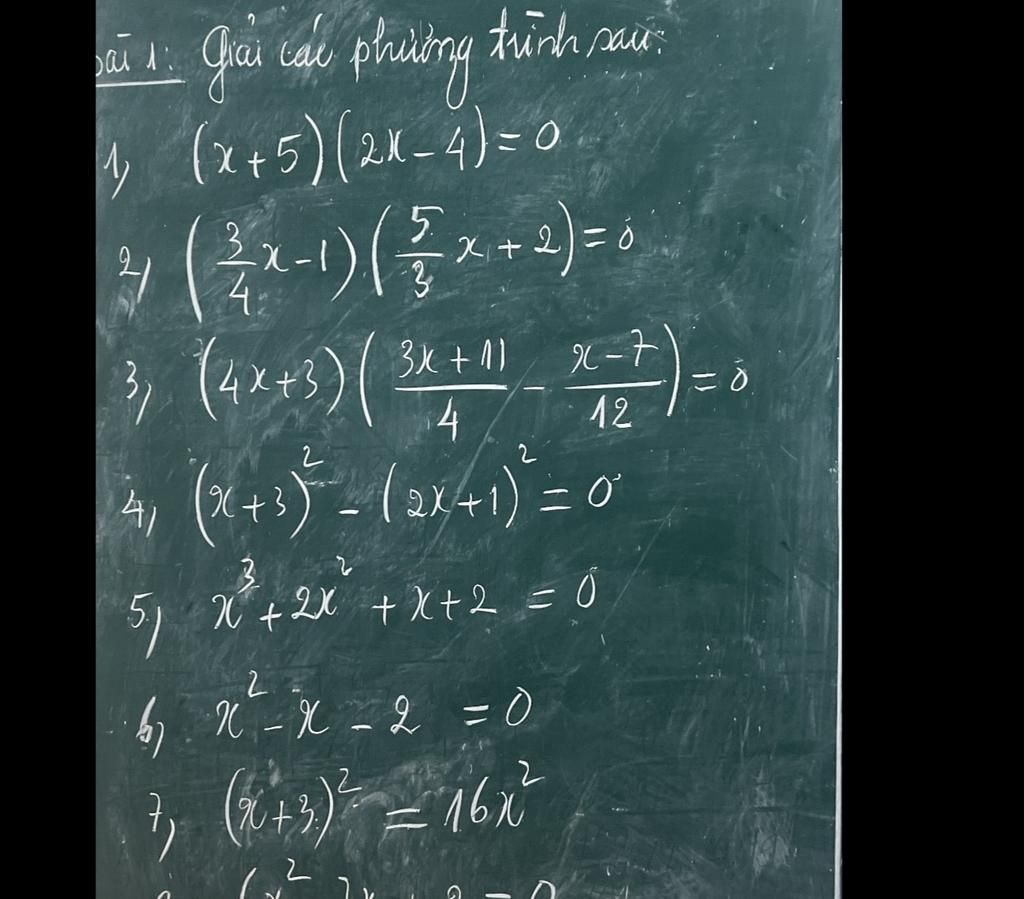 bài 1: Giải các phương trình sau:
1, (x+5)(2x-4)=0
2, (3/4 x-1).(5/3 x+2)=0
3, (4x+3)((3x+11)/4 - (x-7)/12)=0
4, (x+3)² - (2x+1)² = 0
5, x³+2x²+x+2 = 0
6, x²-x-2 = 0
7, (x+3)² = 16x²